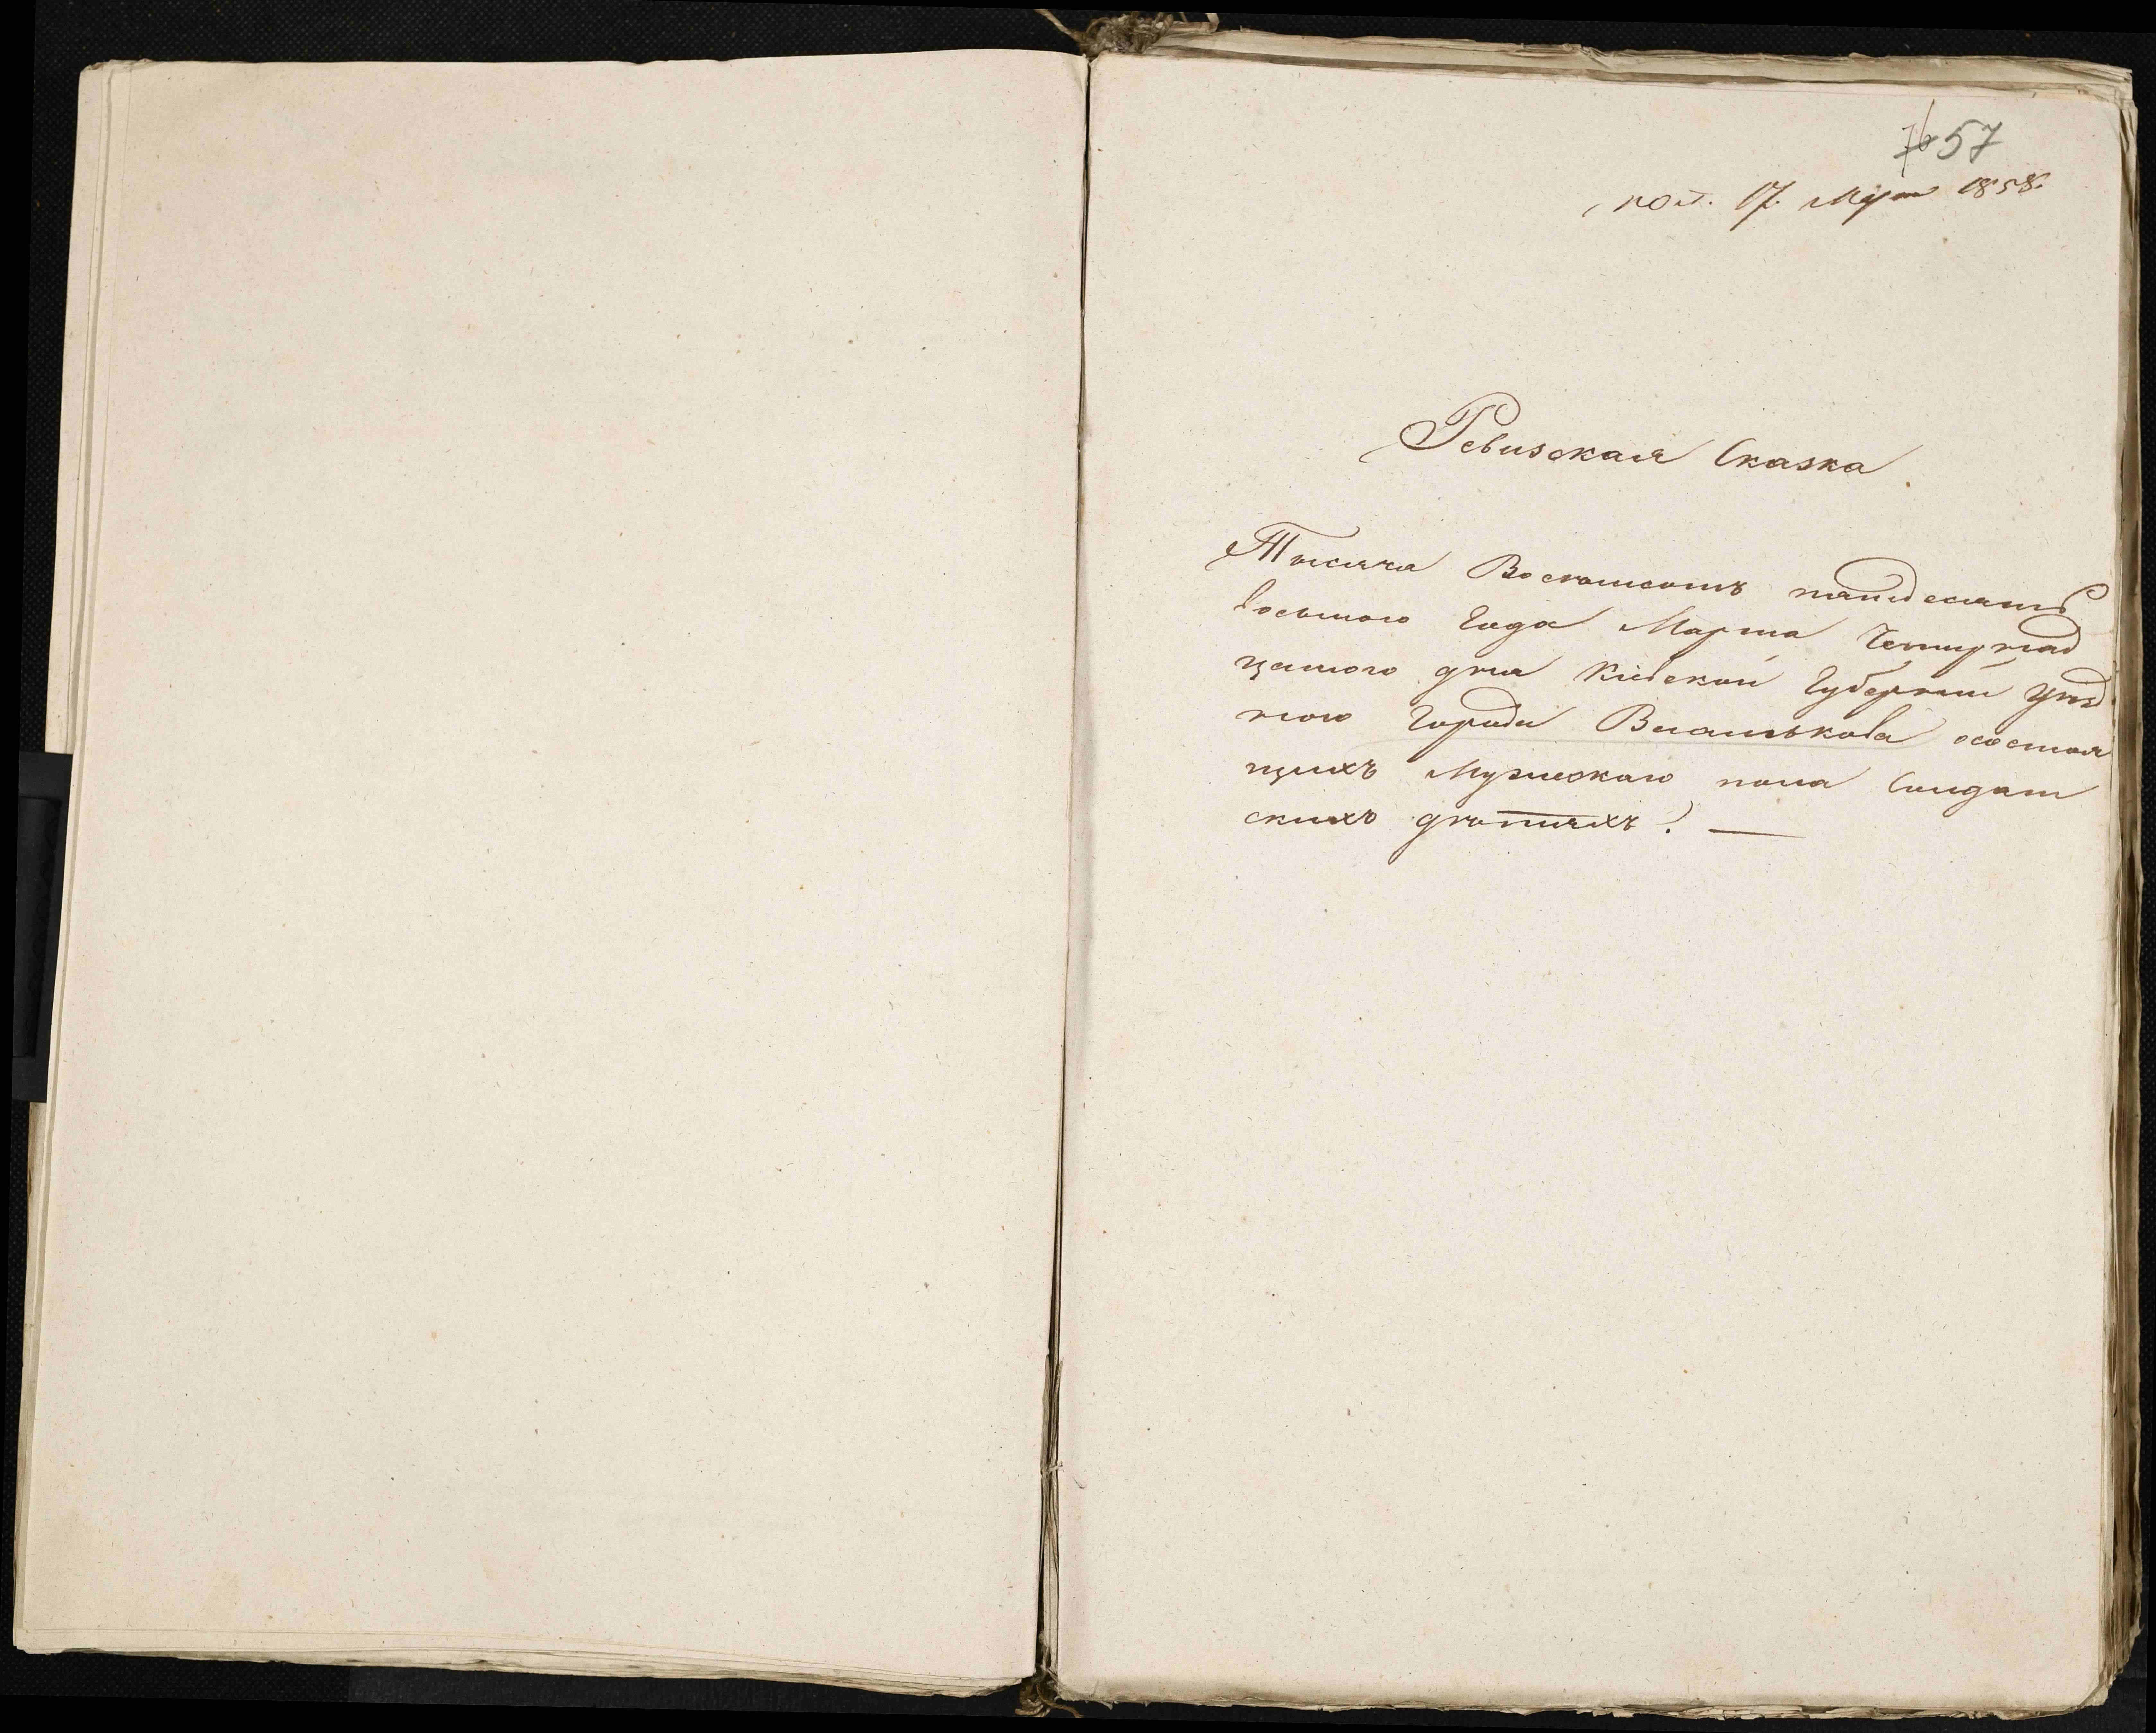 57
пол. 17. Марта 1858.
Ревизская Сказка
Тысяча Восемьсотъ пятьдесятъ
восьмого Года Марта Четырнад
цатого дня Кіевской Губерніи уѣзд
ного Города Василькова о состоя
щихъ Мужескаго пола Солдат
скихъ дѣтяхъ. —